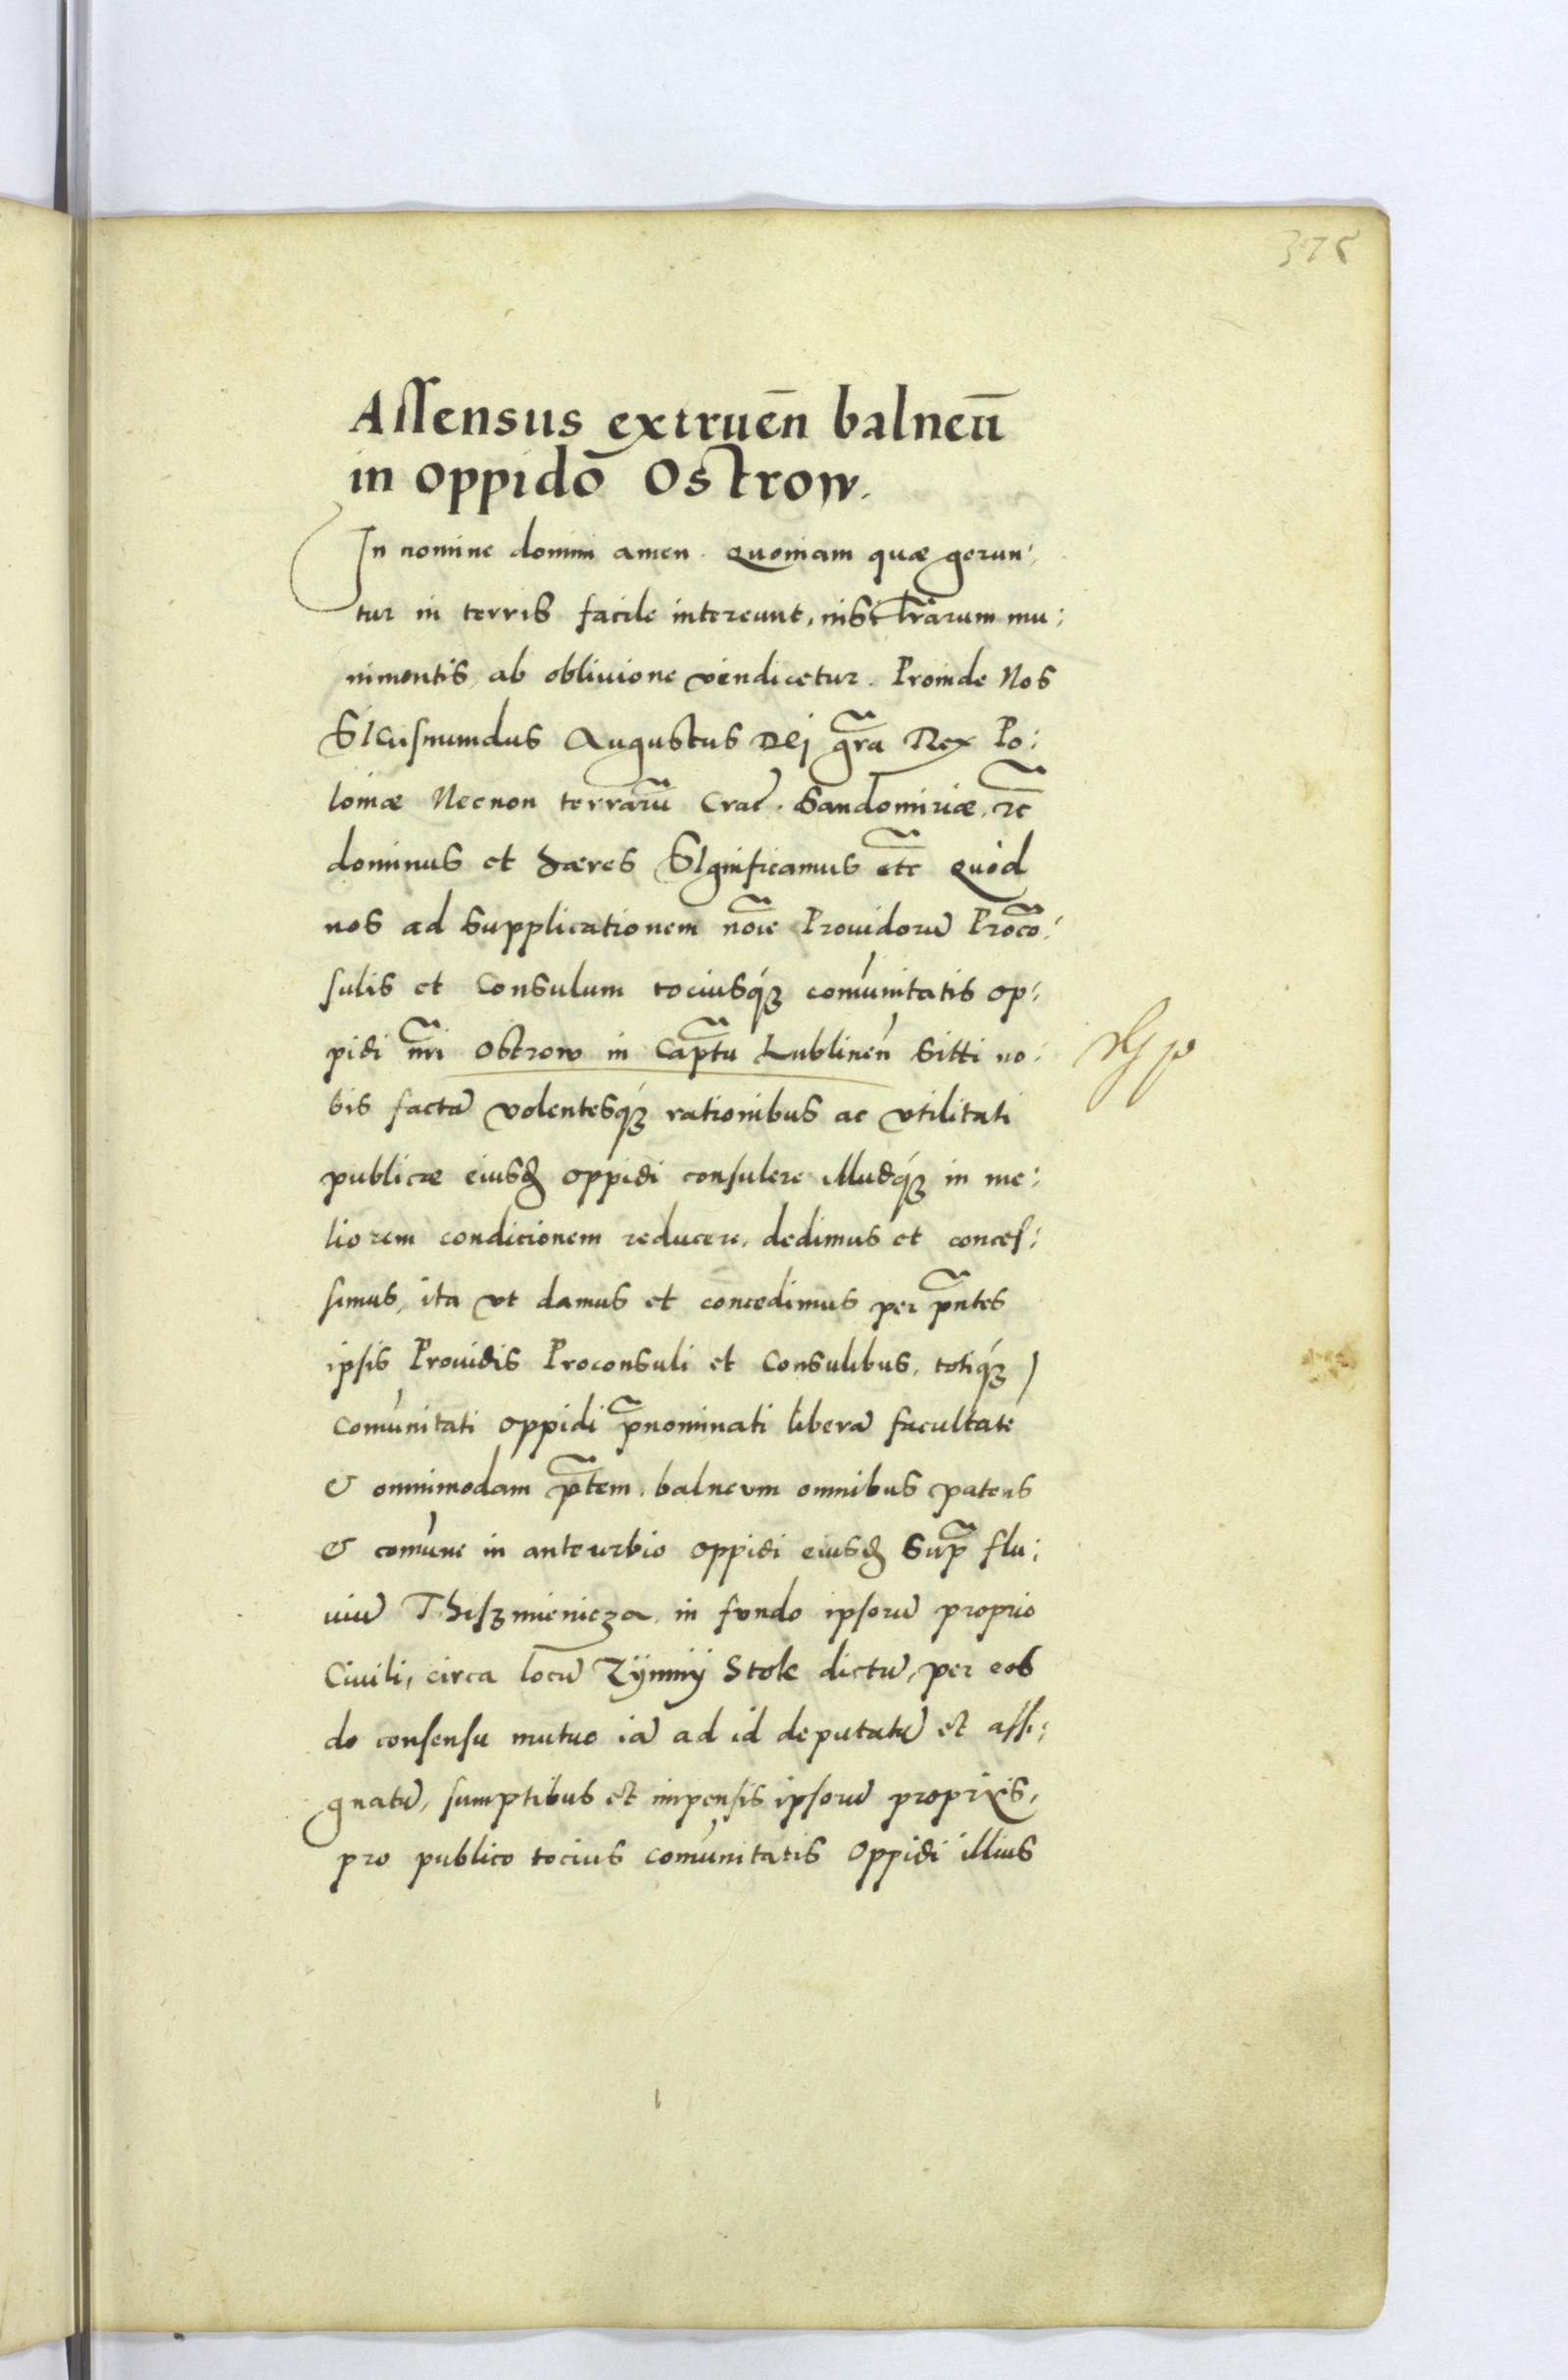 375
Assensus extruen̄ balneū
in oppidō Ostrow.
In nomine domini amen. Quoniam quæ gerun:
tur in terris facile intereunt, nisi lrarum mu:
nimentis, ab obliuione vendicetur. Proinde Nos
SIGismundus Augustus DEj gra Rex Po:
loniæ Necnon terrarū Crac̄. Sandomiriæ, etc
dominus et hæres SIgnificamus etc Quod
nos ad supplicationem noīe Prouidorū Proco:
sulis et Consulum tociusq́ꝫ comunitatis op:
pidi nri Ostrow in Captu Lublinen̄ sitti no:
bis factā volentesq́ꝫ rationibus ac vtilitati
publicæ eiusdꝫ oppidi consulere illudq́ꝫ in me:
liorem condicionem reducere, dedimus et conces:
simus, ita vt damus et concedimus per pntes
ipsis Prouidis Proconsuli et Consulibus, totiq́ꝫ
comunitati oppidi pnominati liberā facultatē
& omnimodam ptem. balneum omnibus patens
& comune in anteurbio oppidi eiusdꝫ sup flu:
uiū Thiszmienicza, in fundo ipsorū proprio
Ciuili, circa locū Zÿmnÿ Stok dictū, per eos
de consensu mutuo iā ad id deputatū et assi:
gnatū, sumptibus et impensis ipsorū proprijs,
pro publico tocius comunitatis oppidi illius